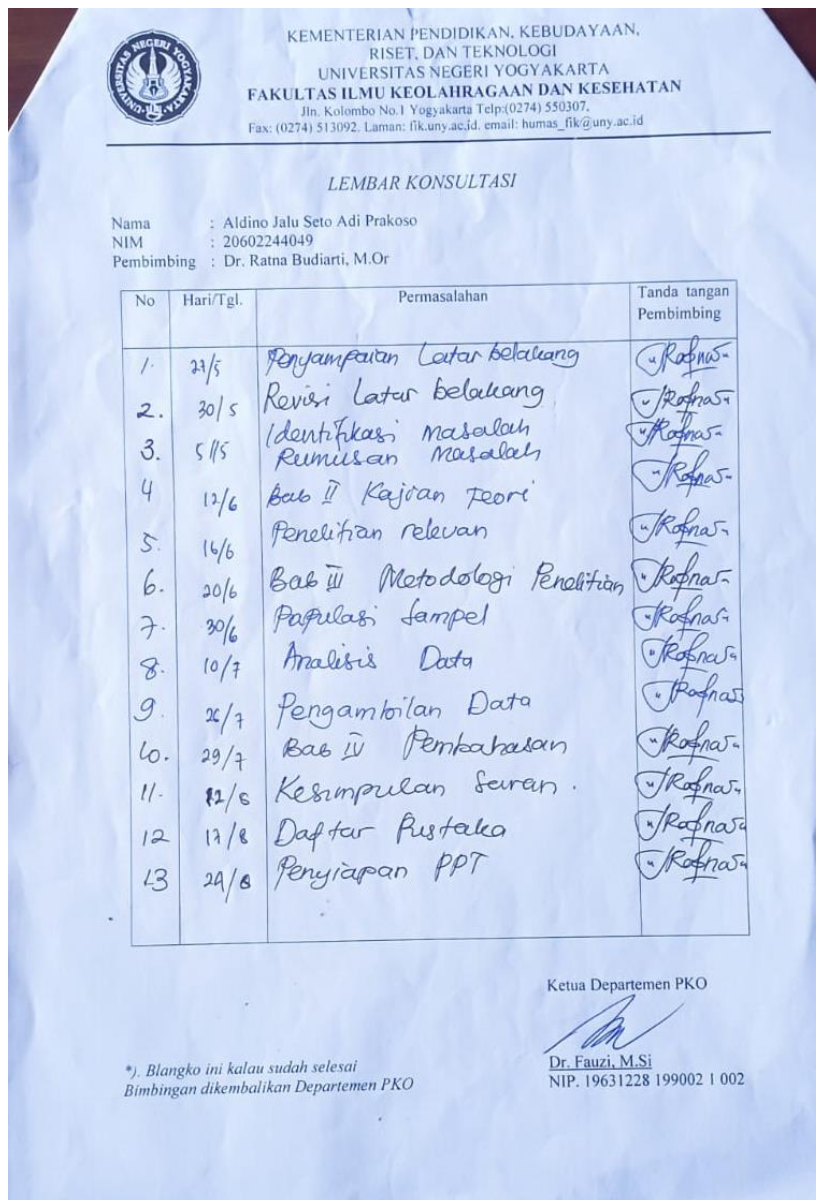 UNIVERSITAS NEGERI YOGYAKARTA
KEMENTERIAN PENDIDIKAN, KEBUDAYAAN,
RISET, DAN TEKNOLOGI
UNIVERSITAS NEGERI YOGYAKARTA
FAKULTAS ILMU KEOLAHRAGAAN DAN KESEHATAN
Jln. Kolombo No.1 Yogyakarta Telp:(0274) 550307,
Fax: (0274) 513092. Laman: fik.uny.ac.id. email: humas_fik@uny.ac.id
LEMBAR KONSULTASI
Nama : Aldino Jalu Seto Adi Prakoso
NIM : 20602244049
Pembimbing : Dr. Ratna Budiarti, M.Or
No Hari/Tgl. Permasalahan Tanda tangan
Pembimbing
1. 27/5 Penyampaian Latar belakang
2. 30/5 Revisi Latar belakang
3. Identifikasi Masalah
Rumusan Masalah
4 12/6 Bab II Kajian Teori
5. 16/6 Penelitian relevan
6. 20/6 Bab III Metodologi Penelitian
7. 30/6 Papulasi Sampel
8. 10/7 Analisis Data
9. 26/7 Pengambilan Data
10. 29/7 Bab IV Pembahasan
11. Kesimpulan Saran.
12 17/8 Daftar Pustaka
13 Penyiapan PPT
Ketua Departemen PKO
*). Blangko ini kalau sudah selesai
Bimbingan dikembalikan Departemen PKO
Dr. Fauzi, M.Si
NIP. 19631228 199002 1 002